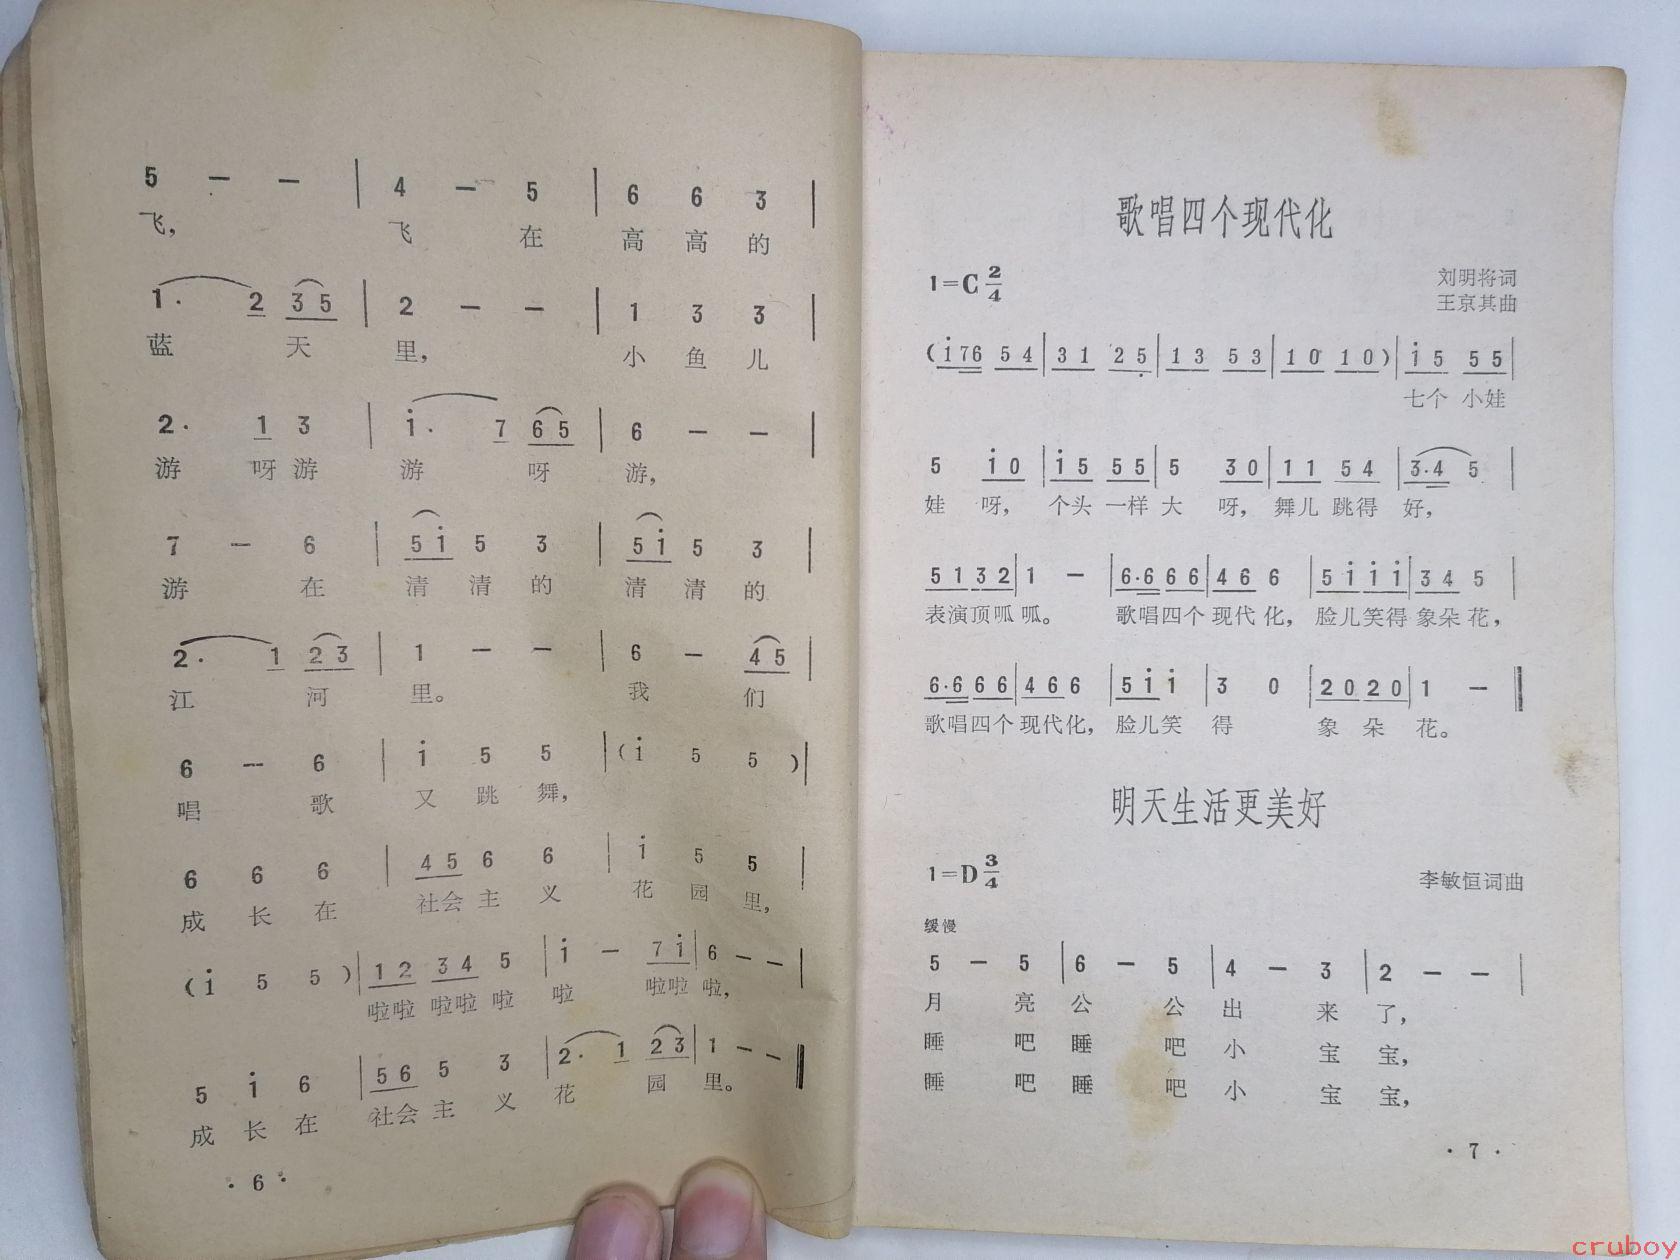 5 — — | 4 — 5 | 6 6 3 |
飞, 飞 在 高 高 的
1. 2 3 5 | 2 — — | 1 3 3 |
蓝 天 里, 小 鱼 儿
2. 1 3 | i. 7 6 5 | 6 — — |
游 呀 游 游 呀 游,
7 — 6 | 5 i 5 3 | 5 i 5 3 |
游 在 清 清 的 清 清 的
2. 1 2 3 | 1 — — | 6 — 4 5 |
江 河 里。 我 们
6 — 6 | i 5 5 | (i 5 5 )|
唱 歌 又 跳 舞,
6 6 6 | 4 5 6 6 | i 5 5 |
成 长 在 社会 主 义 花 园 里,
(i 5 5 )| 1 2 3 4 5 | i — 7 i | 6 — — |
啦啦 啦啦 啦 啦 啦啦 啦,
5 i 6 | 5 6 5 3 | 2. 1 2 3 | 1 — — ‖
成 长 在 社会 主 义 花 园 里。
· 6 ·
歌唱四个现代化
1=C 2/4
刘明将词
王京其曲
(i 76 5 4 | 3 1 2 5 | 1 3 5 3 | 1 0 1 0 )| i 5 5 5 |
七个 小娃
5 i 0 | i 5 5 5 | 5 3 0 | 1 1 5 4 | 3.4 5 |
娃 呀, 个头 一样 大 呀, 舞儿 跳得 好,
5 1 3 2 | 1 — | 6.6 6 6 | 4 6 6 | 5 i i i | 3 4 5 |
表演顶呱 呱。 歌唱四个 现代 化, 脸儿笑得 象朵 花,
6.6 6 6 | 4 6 6 | 5 i i | 3 0 | 2 0 2 0 | 1 — ‖
歌唱四个 现代化, 脸儿笑 得 象 朵 花。
明天生活更美好
1=D 3/4
李敏恒词曲
缓慢
5 — 5 | 6 — 5 | 4 — 3 | 2 — — |
月 亮 公 公 出 来 了,
睡 吧 睡 吧 小 宝 宝,
睡 吧 睡 吧 小 宝 宝,
· 7 ·
cruboy